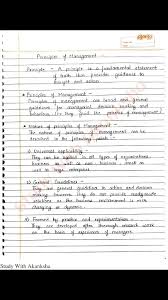 Principles of Management
Principle - A principle is a fundamental statement
of truth that provides guidance to
thought and action.
Principles of Management -
Principles of management are broad and general
guidelines for managerial decision making and
behaviour (i.e. they guide the practice of management)
Nature of Principles of Management -
The nature of principles of management can be
described in the following points -
1) Universal applicability -
They can be applied in all types of organisations,
business as well as non-business, small as
well as large enterprises
2) General Guidelines -
They are general guidelines to action and decision
making however they do not provide readymade
solutions as the business environment is ever
changing or dynamic
3) Formed by practice and experimentation -
They are developed after thorough research work
on the basis of experiences of managers
Study With Akanksha